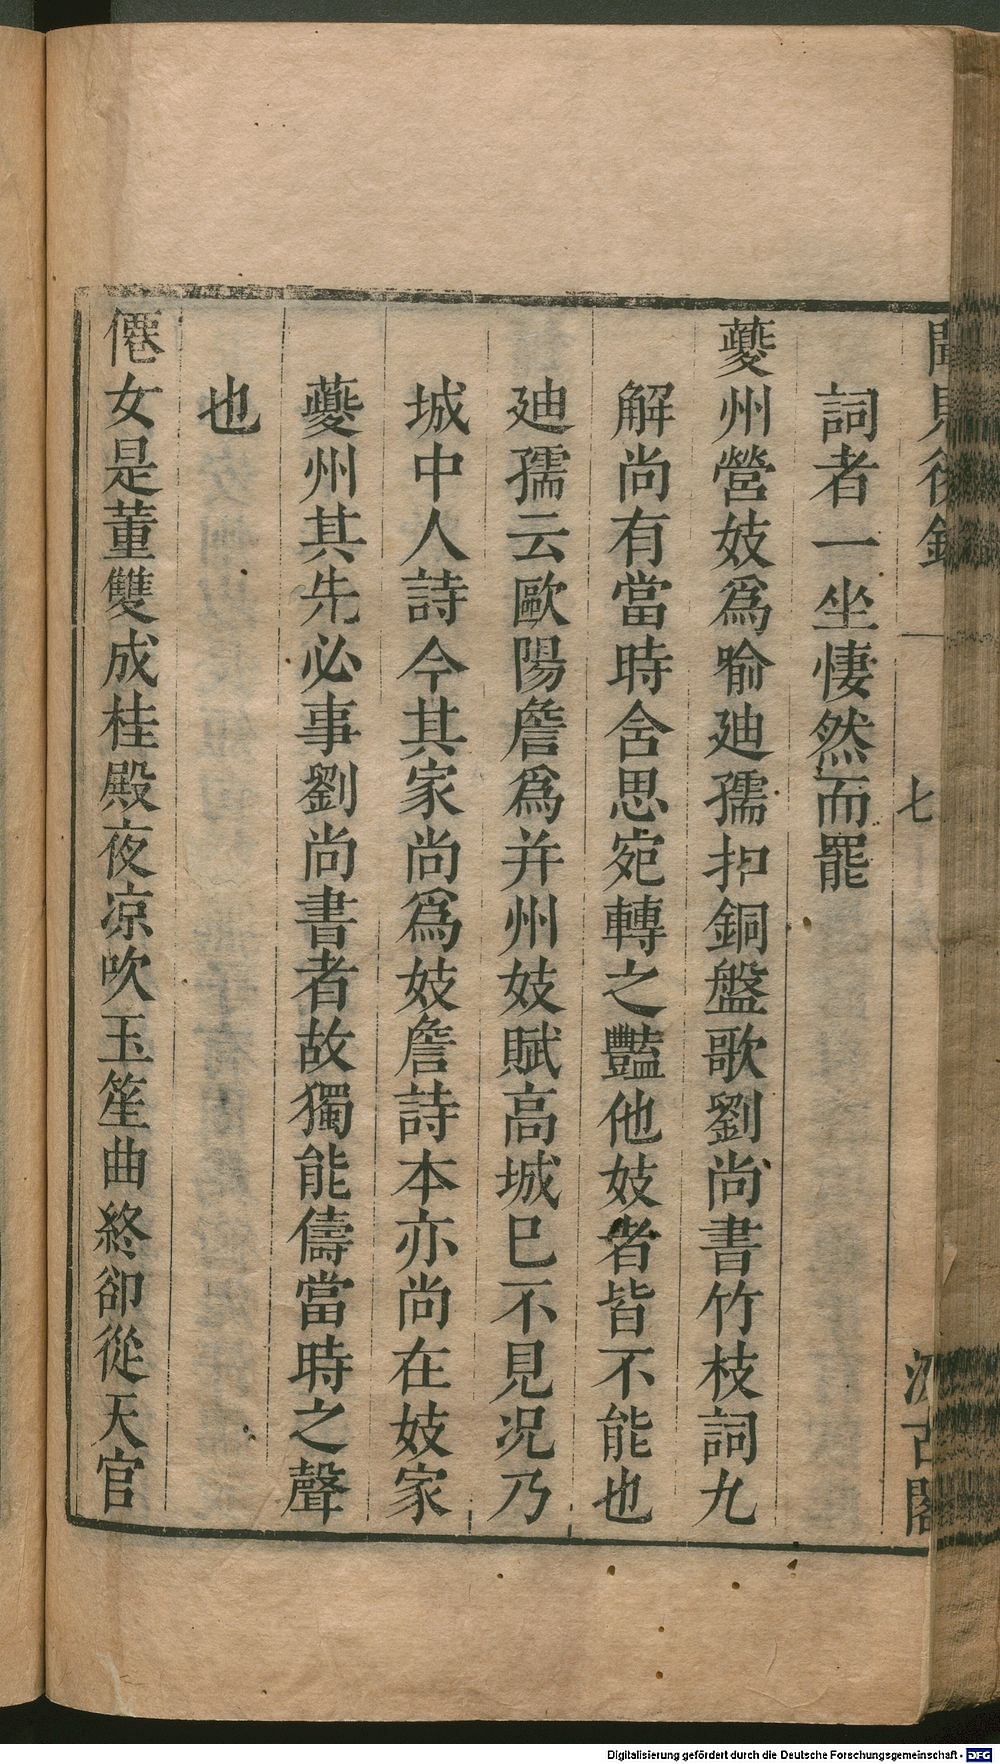 聞見後錄
七
汲古閣
詞者一坐悽然而罷
夔州營妓爲喻廸孺扣銅盤歌劉尚書竹枝詞九
解尚有當時含思宛轉之豔他妓者皆不能也
廸孺云歐陽詹爲并州妓賦高城已不見况乃
城中人詩今其家尚爲妓詹詩本亦尚在妓家
夔州其先必事劉尚書者故獨能儔當時之聲
也
僊女是董雙成桂殿夜凉吹玉笙曲終卻從天官
Digitalisierung gefördert durch die Deutsche Forschungsgemeinschaft - DFG